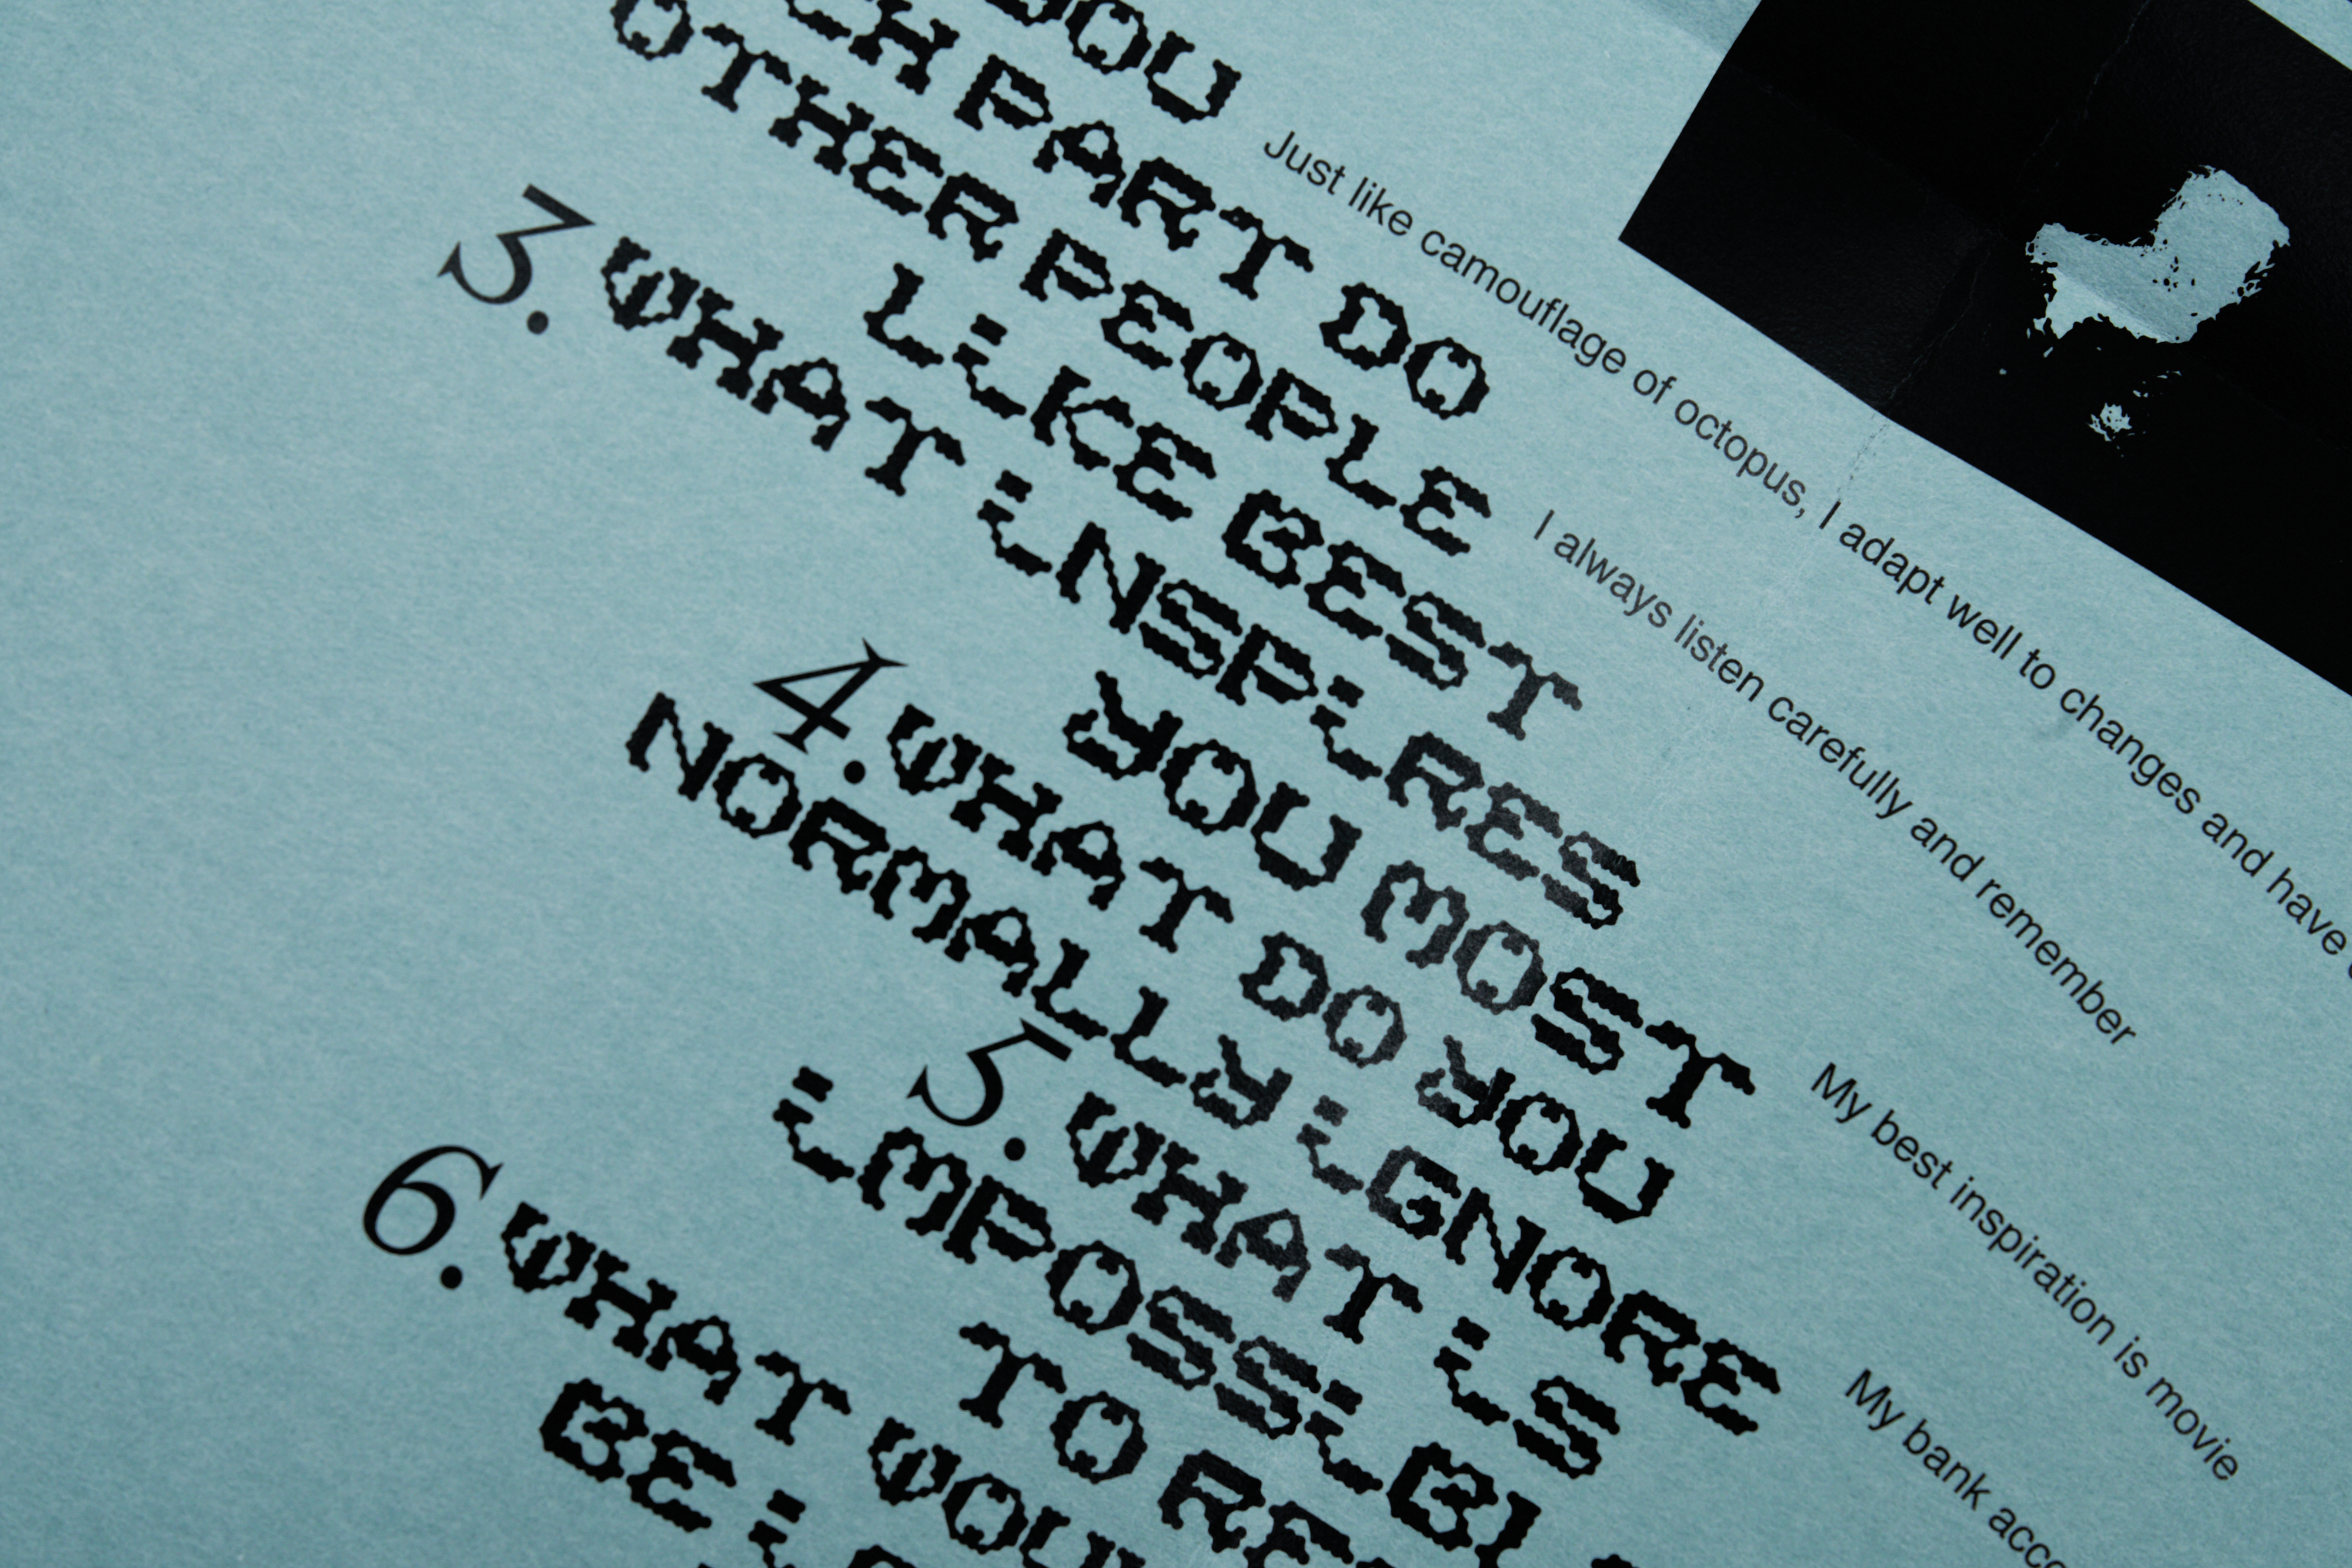 YOU
CH PART DO
Just like camouflage of octopus, I adapt well to changes and have
OTHER PEOPLE
LIKE BEST
I always listen carefully and remember
3. WHAT INSPIRES
YOU MOST
My best inspiration is movie
4. WHAT DO YOU
NORMALLY IGNORE
My bank acco
5. WHAT IS
IMPOSSIBL
TO RE
6. WHAT WOU
BE